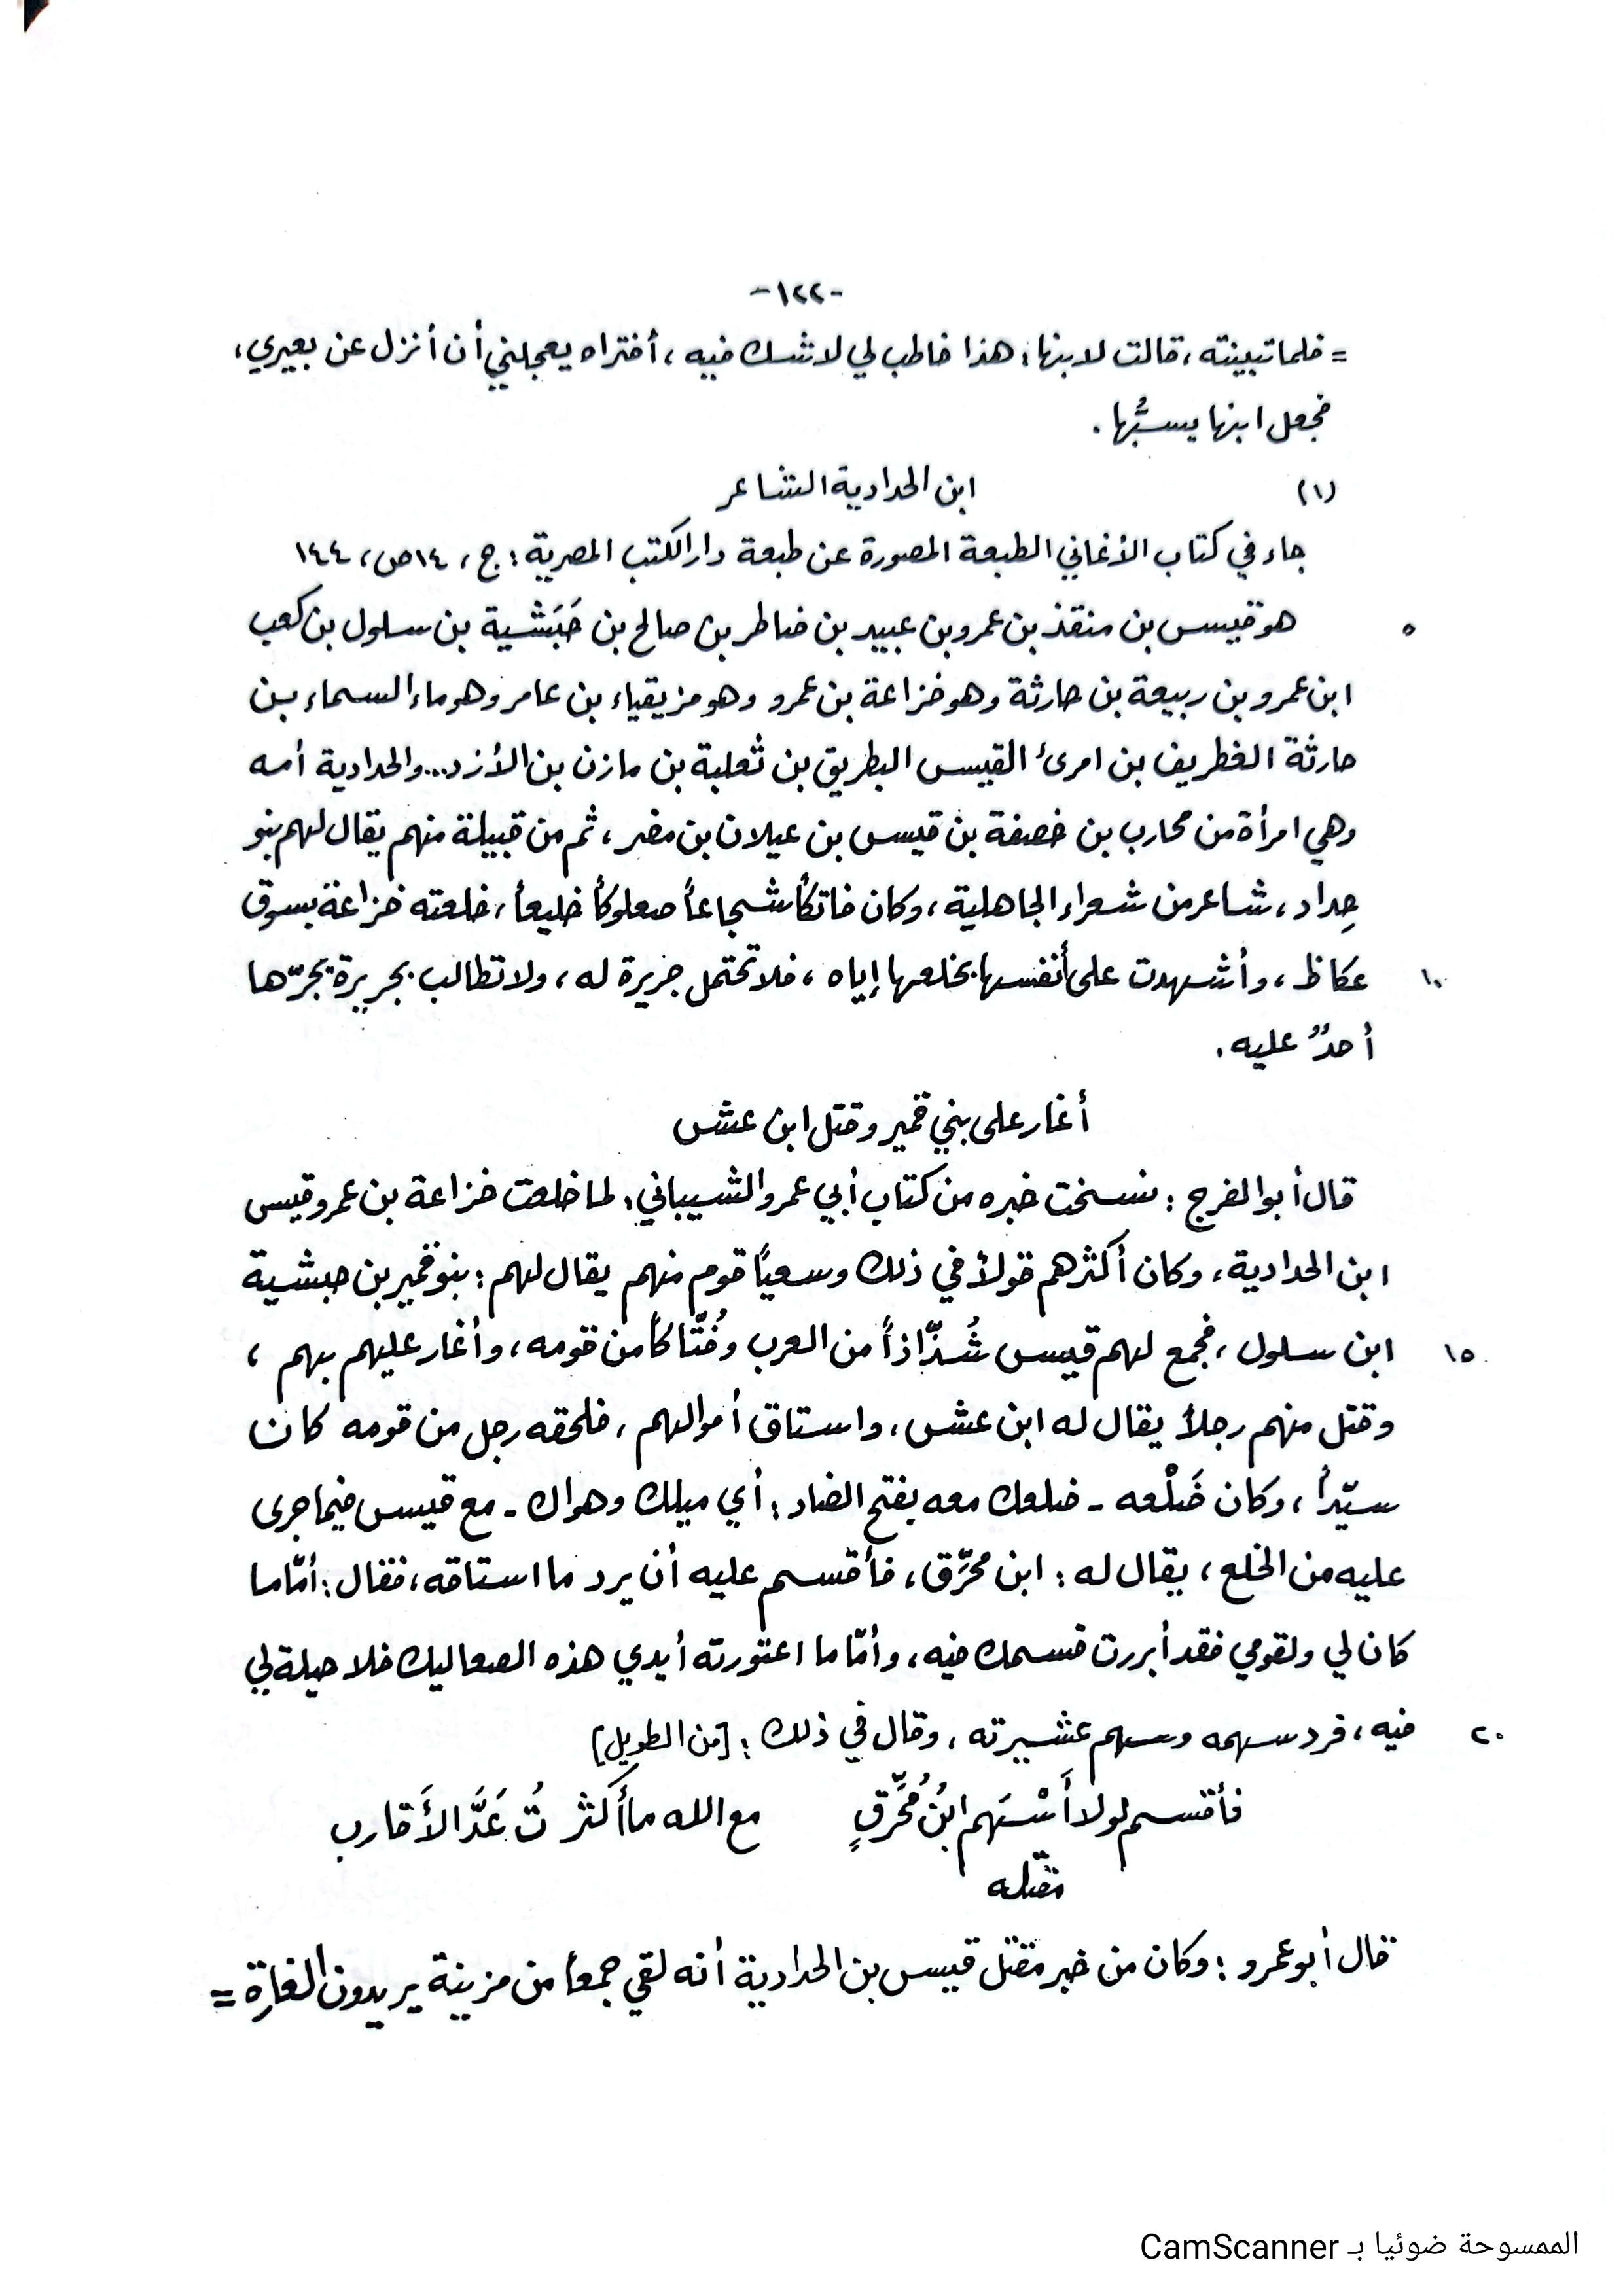 -١٢٢-
= فلما تبينته ، قالت لابنها : هذا خاطب لي لا شك فيه ، أفتراه يعجلني أن أنزل عن بعيري ،
فجعل ابنها يسبُّها .
(١) ابن الحدادية الشاعر
جاء في كتاب الأغاني الطبعة المصورة عن طبعة دار الكتب المصرية : ج ، ١٤ ص ، ١٤٤
٥ هو قيس بن منقذ بن عمرو بن عبيد بن ضاطر بن صالح بن حَبَشية بن سلول بن كعب
ابن عمرو بن ربيعة بن حارثة وهو خزاعة بن عمرو وهو مزيقياء بن عامر وهو ماء السماء بن
حارثة الغطريف بن امرئ القيس البطريق بن ثعلبة بن مازن بن الأزد... والحدادية أمه
وهي امرأة من محارب بن خصفة بن قيس بن عيلان بن مضر ، ثم من قبيلة منهم يقال لهم بنو
حِداد ، شاعر من شعراء الجاهلية ، وكان فاتكاً شجاعاً صعلوكاً خليعاً ، خلعته خزاعة بسوق
١٠ عكاظ ، وأشهدت على أنفسها بخلعها إياه ، فلا تحتمل جريرة له ، ولا تطالب بجريرة يجرّها
أحدٌ عليه .
أغار على بني قمير وقتل ابن عش
قال أبو الفرج : نسخت خبره من كتاب أبي عمرو الشيباني : لما خلعت خزاعة بن عمرو قيس
ابن الحدادية ، وكان أكثرهم قولاً في ذلك وسعياً قوم منهم يقال لهم : بنو قمير بن حبشية
١٥ ابن سلول ، فجمع لهم قيس شُذّاذاً من العرب وفُتّاكاً من قومه ، وأغار عليهم بهم ،
وقتل منهم رجلاً يقال له ابن عش ، واستاق أموالهم ، فلحقه رجل من قومه كان
سيّداً ، وكان ضَلْعه - ضلعك معه بفتح الضاد : أي ميلك وهواك - مع قيس فيما جرى
عليه من الخلع ، يقال له : ابن محرّق ، فأقسم عليه أن يرد ما استاقه ، فقال : أمّا ما
كان لي ولقومي فقد أبررت قسمك فيه ، وأمّا ما اعتورته أيدي هذه الصعاليك فلا حيلة لي
٢٠ فيه ، فرد سهمه وسهم عشيرته ، وقال في ذلك : [من الطويل]
فأقسم لولا أَسْهم ابنُ مُحرَّقٍ مع الله ما أكثرتُ عَدَّ الأَقارب
مقتله
قال أبو عمرو : وكان من خبر مقتل قيس بن الحدادية أنه لقي جمعاً من مزينة يريدون الغارة =
الممسوحة ضوئيا بـ CamScanner